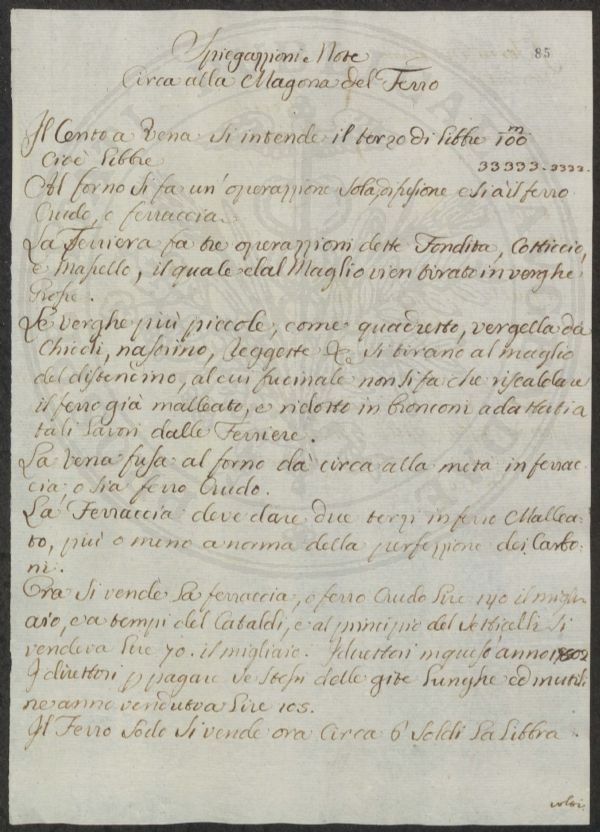 85
Spiegazzioni e Note
Circa alla Magona del Ferro
Il Cento a Vena si intende il terzo di libbre 100 m
Cioè libbre 33333.3333.
Al forno si fa un' operazzione sola, di fusione o sia il ferro
Crudo, o ferraccia.
La Ferriera fa tre operazzioni dette Fondita, Cotticcio,
e Masello, il quale dal Maglio vien tirato in verghe
Grosse.
Le verghe più piccole, come quadretto, vergella da
Chiodi, nastrino, Reggette &c si tirano al maglio
del distencino, al cui fucinale non si fa che riscaldare
il ferro già malleato, e ridotto in bronconi adattati a
tali lavori dalle Ferriere.
La vena fusa al forno dà circa alla metà in ferrac-
cia, o sia ferro Crudo.
La Ferraccia deve dare due terzi in ferro Mallea-
to, più o meno a norma della perfezzione dei Carbo-
ni.
Ora si vende la ferraccia, o ferro Crudo lire 140 il migli-
aio, e a tempi del Cataldi, e al principio del Setticelli si
vendeva lire 70. il migliaio. I direttori in quest' anno 1802
I direttori p pagare se stessi delle gite lunghe ed inutili
ne anno venduta a lire 105.
Il Ferro Sodo si vende ora Circa 6 soldi la libbra